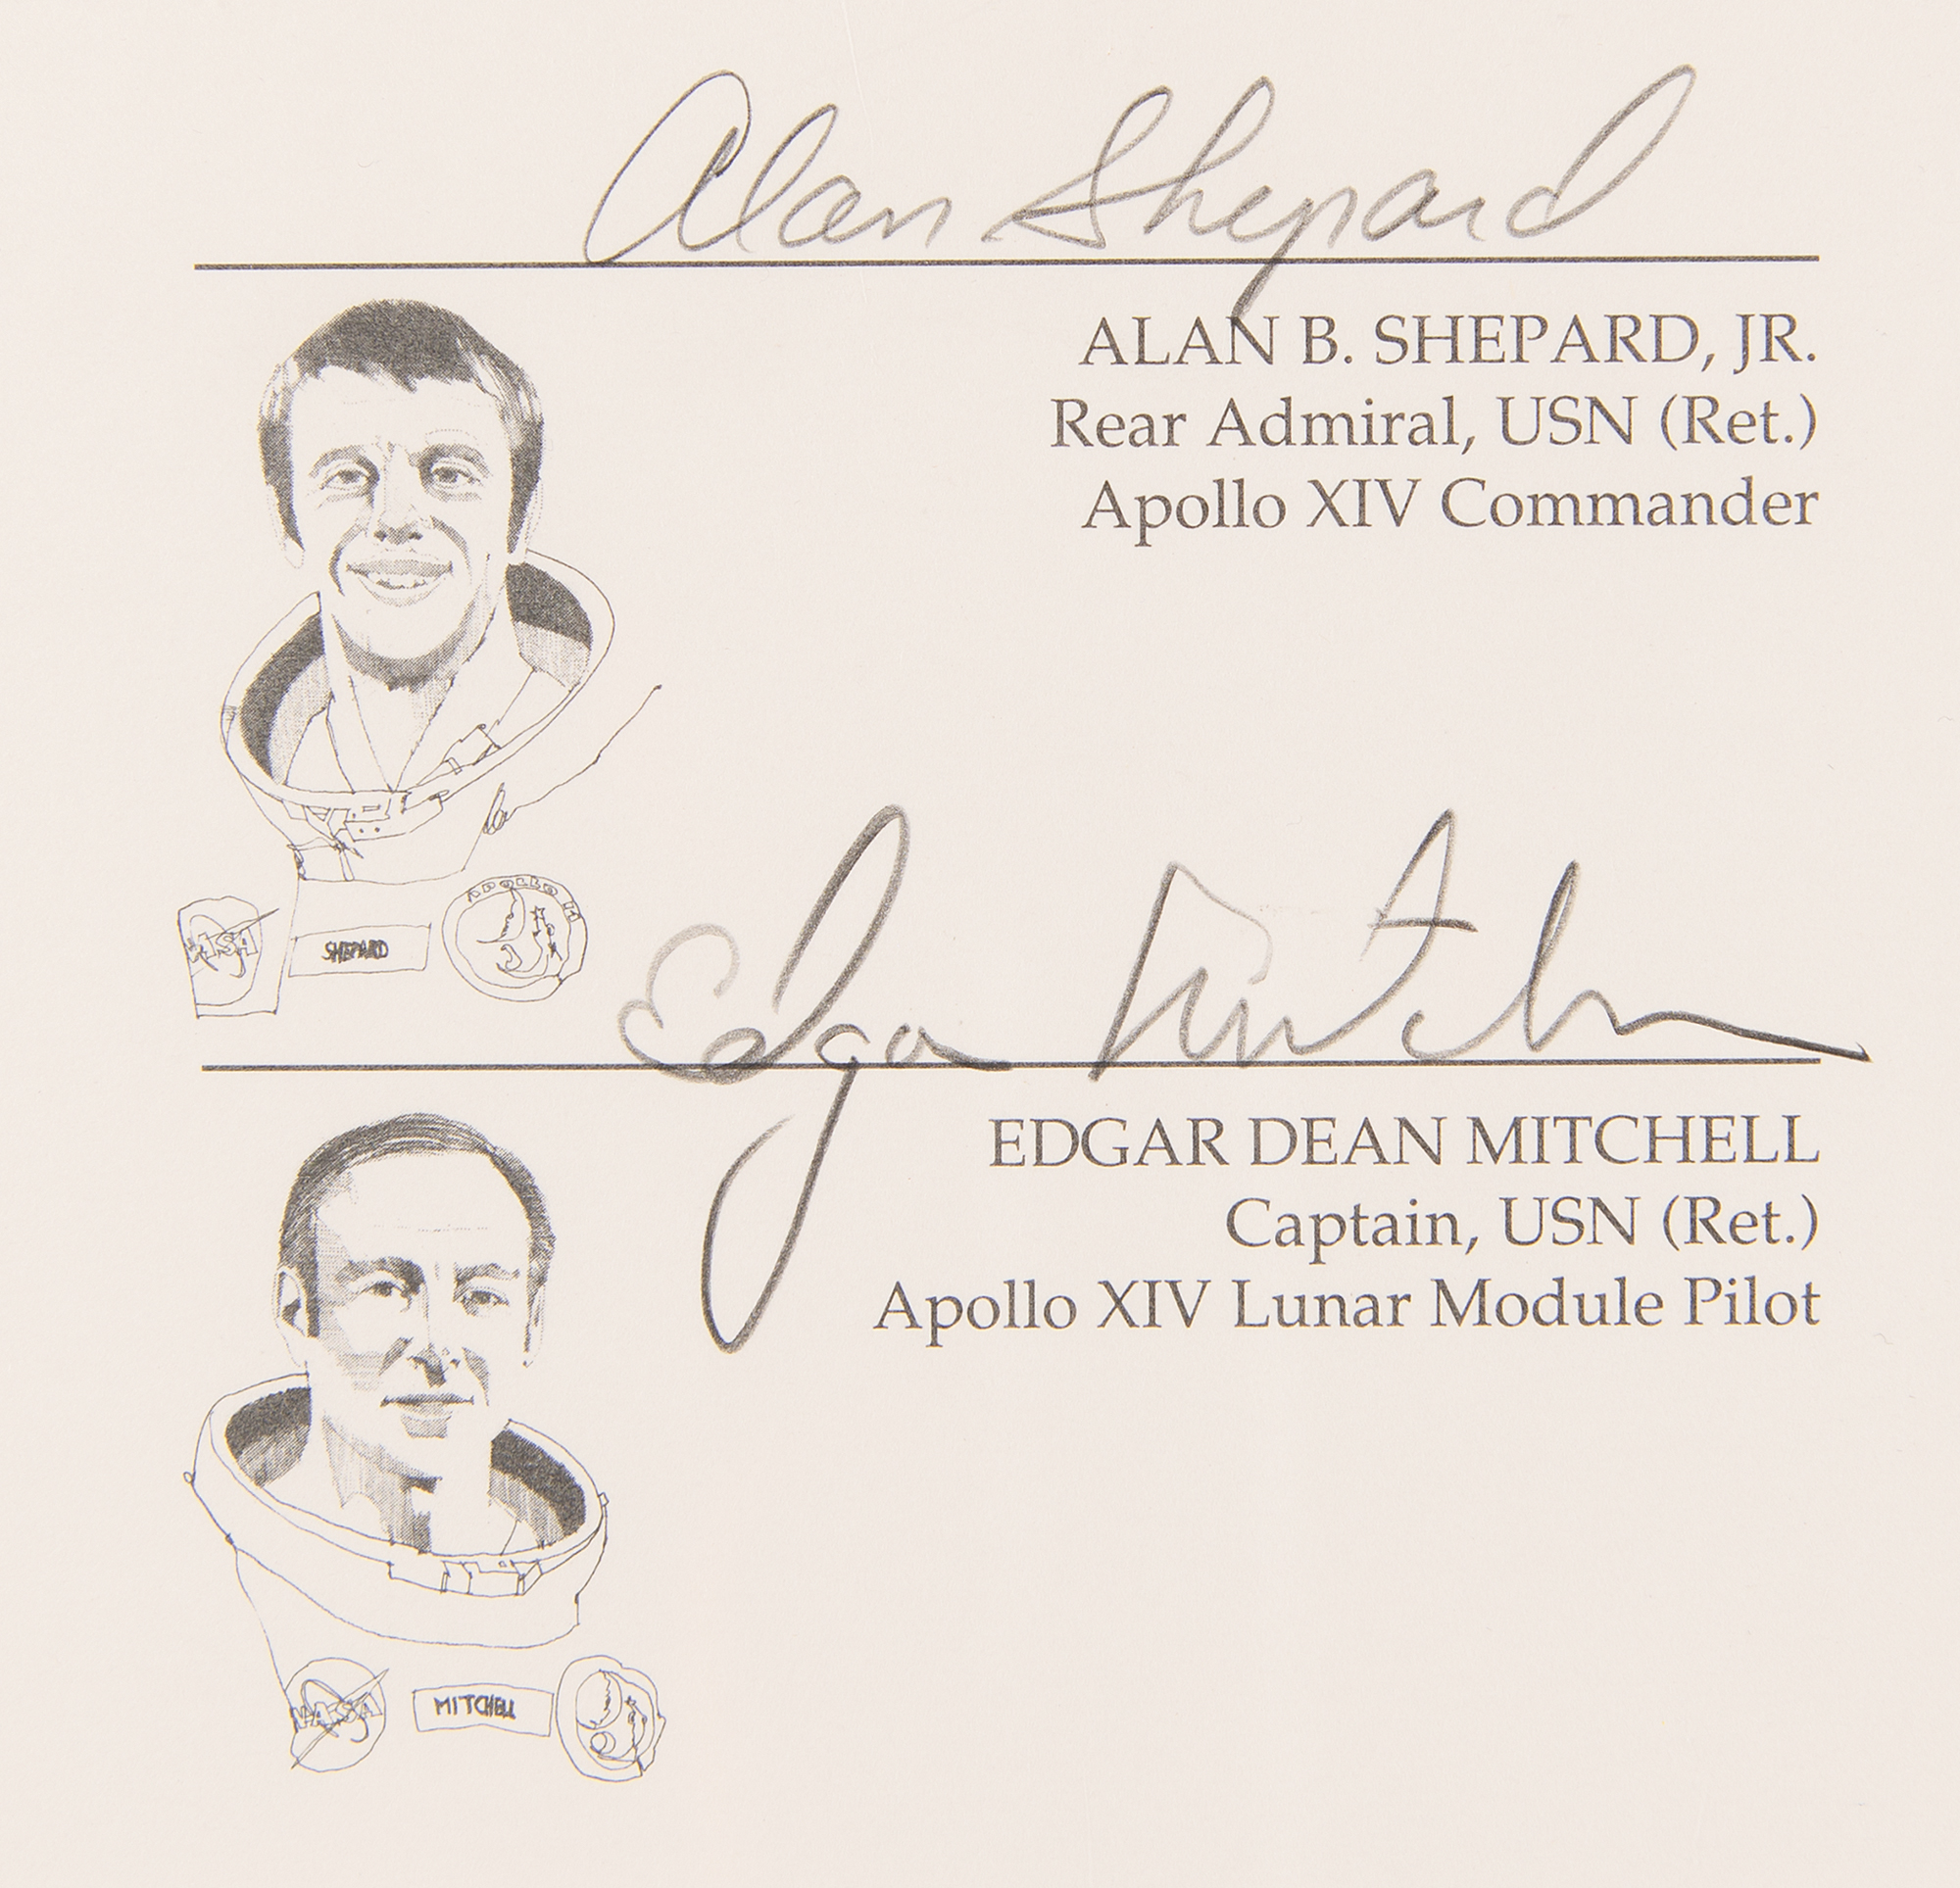 Alan Shepard
ALAN B. SHEPARD, JR.
Rear Admiral, USN (Ret.)
Apollo XIV Commander
APOLLO 14
NASA
SHEPARD
Edgar Mitchell
EDGAR DEAN MITCHELL
Captain, USN (Ret.)
Apollo XIV Lunar Module Pilot
NASA
MITCHELL